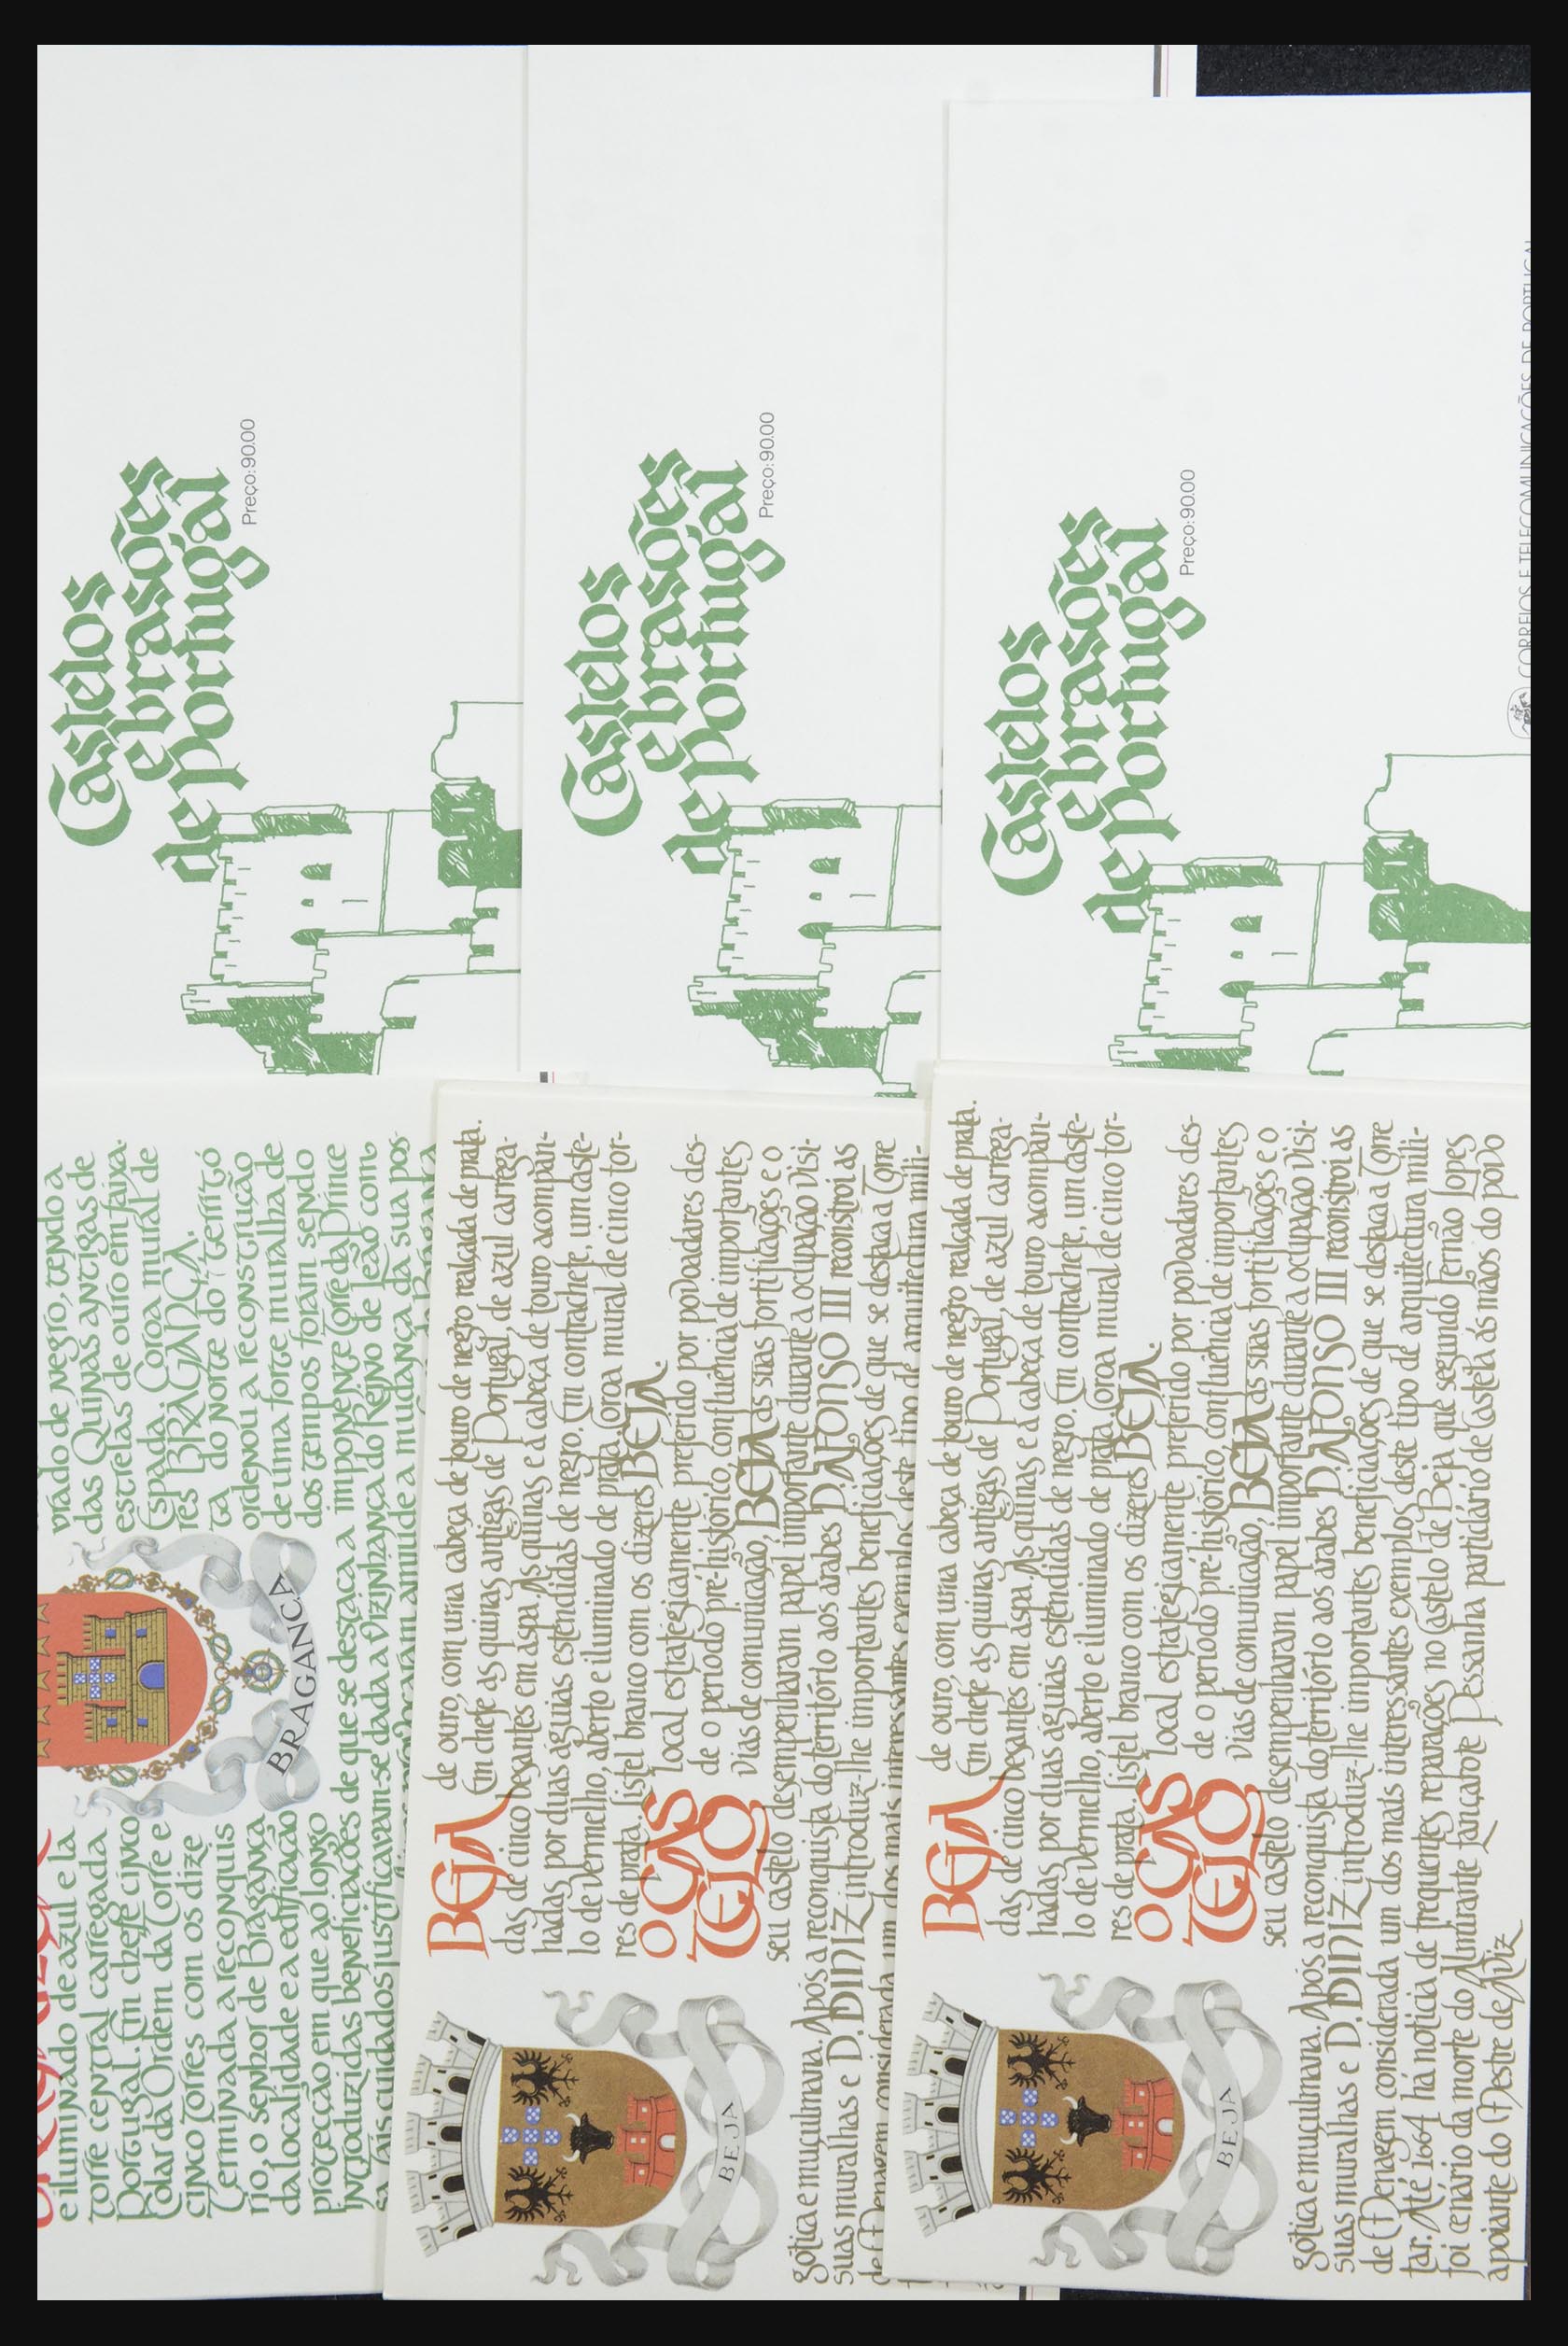 Castelos
e brasões
de Portugal
Preço: 90.00
Castelos
e brasões
de Portugal
Preço: 90.00
Castelos
e brasões
de Portugal
Preço: 90.00
CORREIOS E TELECOMUNICAÇÕES DE PORTUGAL
e iluminado de azul e la
torre central carregada
Portugal. Em cheffe cinco
Colar da Ordem da Torre e
cinco torres com os dize
Terminada a reconquis
rio, o senhor de Bragança
da localidade e a edificação
protecção em que ao longo
vrado de negro, tendo a
das Quinas antigas de
estrelas de ouro em faixa.
Espada. Coroa mural de
res BRAGANÇA.
ta do norte do território
ordenou a reconstrução
de uma forte muralha de
dos tempos foram sendo
introduzidas beneficiações de que se destaca a imponente Torre da Prince
sa. Tais cuidados justificavam-se dada a vizinhança do Reino de Leão com
BRAGANÇA
BEJA
de ouro, com uma cabeça de touro de negro realçada de prata.
Em chefe as quinas antigas de Portugal, de azul carrega-
das de cinco besantes em aspa. As quinas e a cabeça de touro acompan-
hadas por duas águias estendidas de negro. Em contrachefe, um caste-
lo de vermelho, aberto e iluminado de prata. Coroa mural de cinco tor-
res de prata. Listel branco com os dizeres BEJA.
O CAS
TELO
local estratégicamente preferido por povoadores des-
de o período pré-histórico, confluência de importantes
vias de comunicação, BEJA as suas fortificações e o
seu castelo desempenharam papel importante durante a ocupação visi-
gótica e muçulmana. Após a reconquista do território aos árabes D. AFONSO III reconstroi as
suas muralhas e D. DINIZ introduz-lhe importantes beneficiações de que se destaca a Torre
de Menagem considerada um dos mais interessantes exemplos deste tipo de arquitectura mili-
BEJA
BEJA
de ouro, com uma cabeça de touro de negro realçada de prata.
Em chefe as quinas antigas de Portugal, de azul carrega-
das de cinco besantes em aspa. As quinas e a cabeça de touro acompan-
hadas por duas águias estendidas de negro. Em contrachefe, um caste-
lo de vermelho, aberto e iluminado de prata. Coroa mural de cinco tor-
res de prata. Listel branco com os dizeres BEJA.
O CAS
TELO
local estratégicamente preferido por povoadores des-
de o período pré-histórico, confluência de importantes
vias de comunicação, BEJA as suas fortificações e o
seu castelo desempenharam papel importante durante a ocupação visi-
gótica e muçulmana. Após a reconquista do território aos árabes D. AFONSO III reconstroi as
suas muralhas e D. DINIZ introduz-lhe importantes beneficiações de que se destaca a Torre
de Menagem considerada um dos mais interessantes exemplos deste tipo de arquitectura mili-
tar. Até 1664 há notícia de frequentes reparações no Castelo de Beja que segundo Fernão Lopes
foi cenário da morte do Almirante Lançarote Pessanha partidário de Castela ás mãos do povo
apoiante do Mestre de Aviz
BEJA